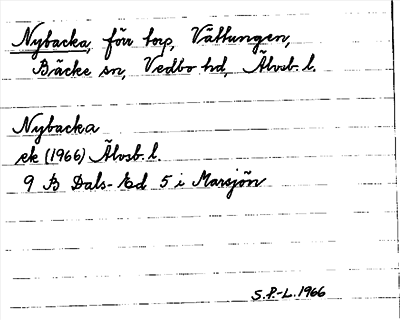 Nybacka, förr torp, Vättungen,
Bäcke sn, Vedbo hd, Älvsb. l.
Nybacka
ek (1966) Älvsb. l.
9 B Dals-Ed 5 i Marsjön
S.P.-L. 1966